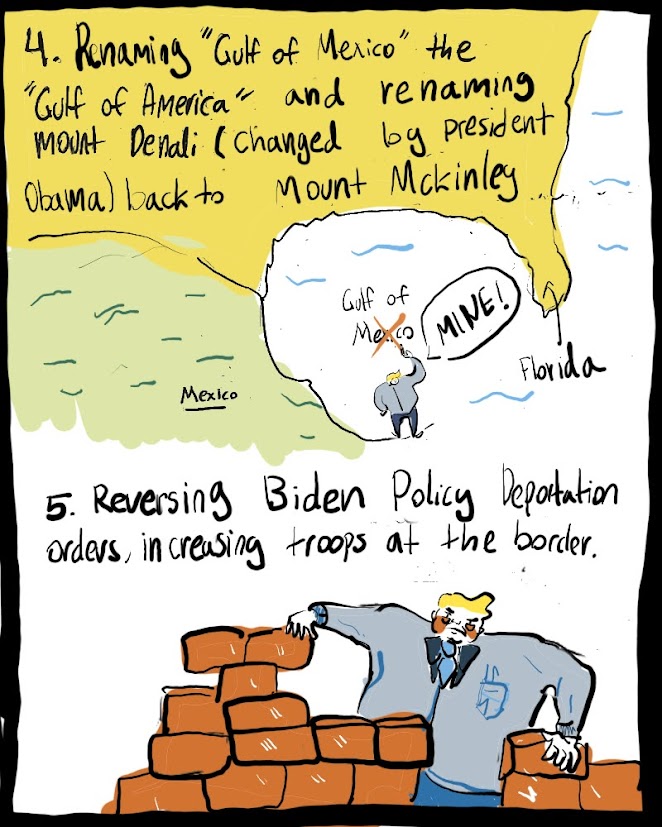 4. Renaming "Gulf of Mexico" the
"Gulf of America" and renaming
Mount Denali (Changed by president
Obama) back to Mount Mckinley
Gulf of
Mexico
MINE!
Florida
Mexico
5. Reversing Biden Policy Deportation
orders, increasing troops at the border.